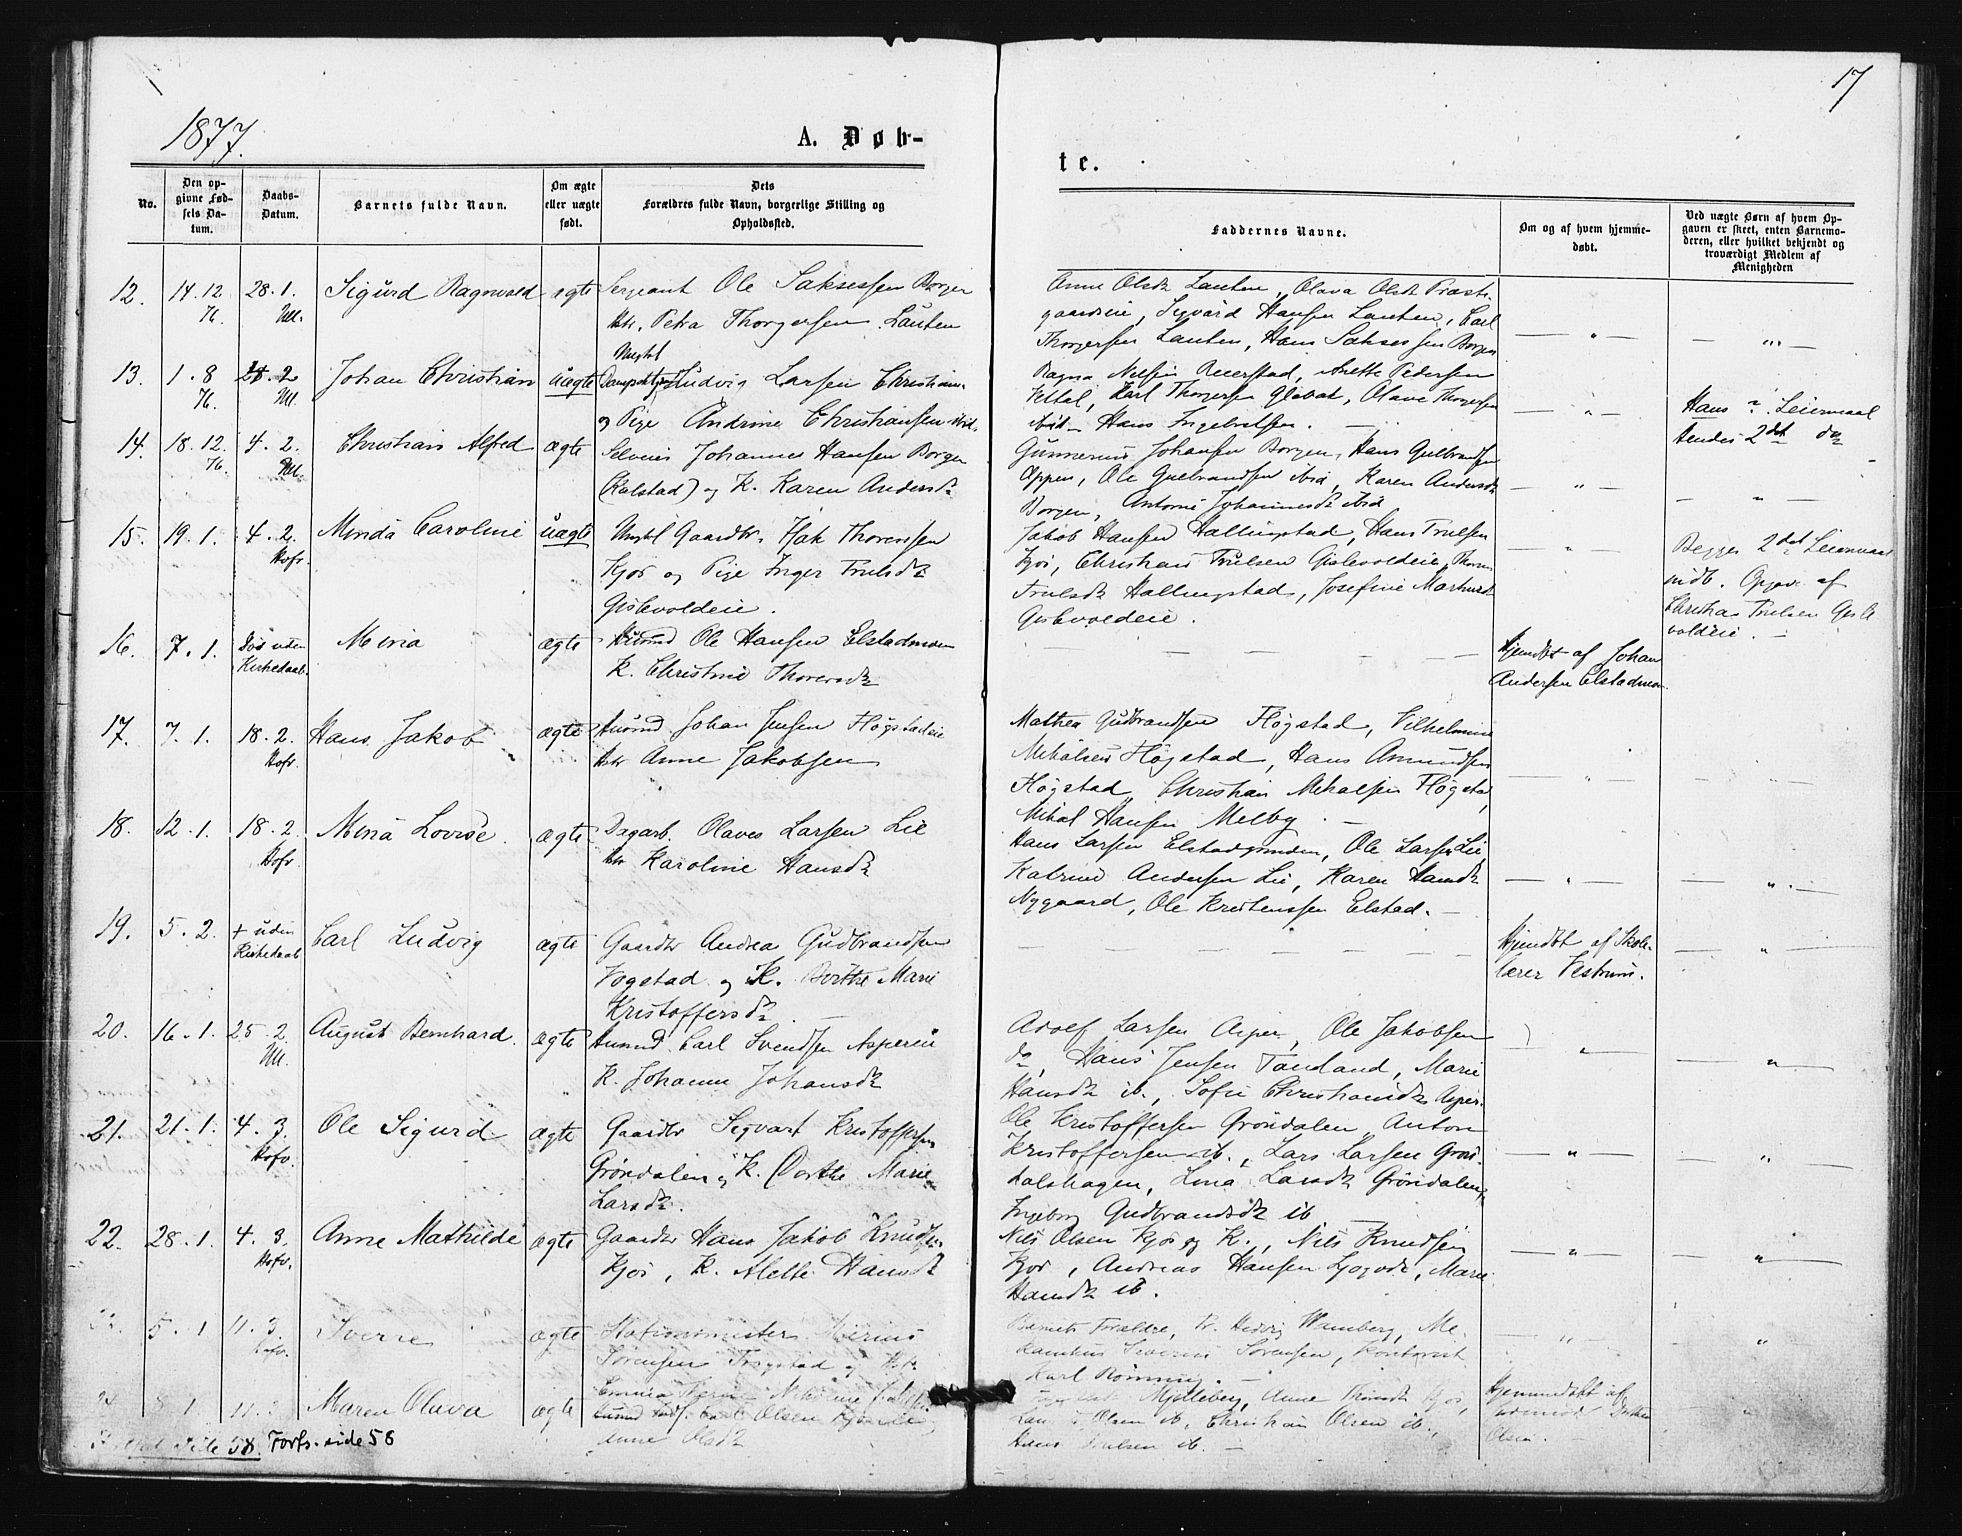 17
1877.
A. Døb-
te.
No.
Den op-
givne Fød-
sels Da-
tum.
Daabs-
Datum.
Barnets fulde Navn.
Om ægte
eller uægte
født.
Dets
Forældres fulde Navn, borgerlige Stilling og
Opholdssted.
Faddernes Navne.
Om og af hvem hjemme-
døbt.
Ved uægte Børn af hvem Op-
gaven er skeet, enten Barnemo-
deren, eller hvilket bekjendt og
troværdigt Medlem af
Menigheden
12. 14.12. 76. 28.1. Ull. Sigurd Ragnvald ægte
Sergeant Ole Saksessen Borgen
Hstr. Petra Thorgersen Lauten
Anne Olsdr Lauten, Olava Olsdr Præste-
gaardseie, Sigvard Hansen Lauten, Carl
Thorgersen Lauten, Hans Saksessen Borgen
13. 1.8 76. Ull. Johan Christian uægte
Ungkl
Ludvig Larsen Christian.
og Pige Andrine Christiansen ibid.
Ragna Nelsen Anette Pedersen
Karl Thorgersen Olava Thorgersen
ibid - Hans Ingebretsen. -
Hans Leiermaal
2det
14. 18.12. 76. 4.2. Ull. Christian Alfred ægte
Johannes Hansen Borgen
(Kalstad) og K. Karen Andersdr
Gunnerius Johansen Borgen, Hans Gulbrandsen
Oppen, Ole Gulbrandsen ibid, Karen Andersdr
Borgen, Antoni Johannesdr ibid
15. 19.1. 4.2. Hofv. Minda Caroline uægte
Ungkl Gaardbr. Isak Thoressen
Kjos og Pige Inger Trulsdr
Gislevoldeie.
Jakob Hansen Hallingstad, Hans Trulsen
Kjos, Christian Trulsen Gislevoldeie, Thorine
Trulsdr Hallingstad, Josefine
Gislevoldeie.
Begges 2det Leiermaal
Opgav. af
Christian Trulsen Gisle
voldeie. -
16. 7.1. Død uden
Kirkedaab. Maria ægte
Husmd Ole Hansen Elstadmoen
K. Christine Thoresdr
Hjemdbt af Johan
Andersen Elstadmoen.
17. 7.1. 18.2. Hofv. Hans Jakob ægte
Husmd Johan Jensen Høgstadeie
Hstr Anne Jakobsen
Mathea Gudbrandsen Høgstad, Vilhelmine
Mikalsen Høgstad, Hans Amundsen
Høgstad, Christian Mikalsen Høgstad,
Mikal Hansen Melby. -
18. 12.1. 18.2. Hofv. Mina Lovise. ægte
Dagarb. Olaves Larsen Lie
Hstr Karoline Hansdr
Hans Larsen Elstadgrinden, Ole Larsen Lie,
Katrine Andersen Lie, Karen Hansdr
Nygaard, Ole Kristenssen Elstad. -
19. 5.2. + uden
Kirkedaab Carl Ludvig ægte
Gaardbr Andrea Gudbrandsen
Vogstad og K. Berthe Marie
Kristoffersdr -
Hjemdbt af Skole-
lærer Vestrum.
20. 16.1. 25.2. Ull. August Bernhard. ægte
Husmd Carl Svendsen Aspereie
K. Johanne Johansdr
Adolf Larsen Asper, Ole Jakobsen
do, Hans Jensen Tandand, Marie
Hansdr ib., Sofie Christiansdr Asper.
21. 21.1. 4.3. Hofv. Ole Sigurd ægte
Gaardbr Sigvart Kristoffersen
Grøndalen og K. Dorthe Marie
Larsdr.
Ole Kristoffersen Grøndalen, Anton
Kristoffersen ib., Lars Larsen Grøn-
dalshagen, Lina Larsdr Grøndalen,
Ingeborg Gudbrandsdr ib -
22. 28.1. 4.3. Hofv. Anne Mathilde ægte
Gaardbr Hans Jakob Knudsen
Kjos, K. Alette Hansdr
Nils Olsen Kjos og K., Nils Knudsen
Kjos, Andreas Hansen, Marie
Hansdr ib.
5.1 11.3. Hofv. Sverre ægte
Stationsmester
Sørensen og Hstr
Barnets Forældre, Fr. Hedvig Wamberg, Me-
kanikus Severin Sørensen, Kontorist
Karl Rønning. -
8.1 11.3. Maren Olava ægte
Carl Olsen
Anne Olsdr
Mjølleberg, Anne Kjos,
Olsen ib., Christian Olsen ib.,
Hans Trulsen ib. -
Hjemmedøbt af
Olsen. -
Side 58. Forts. side 58